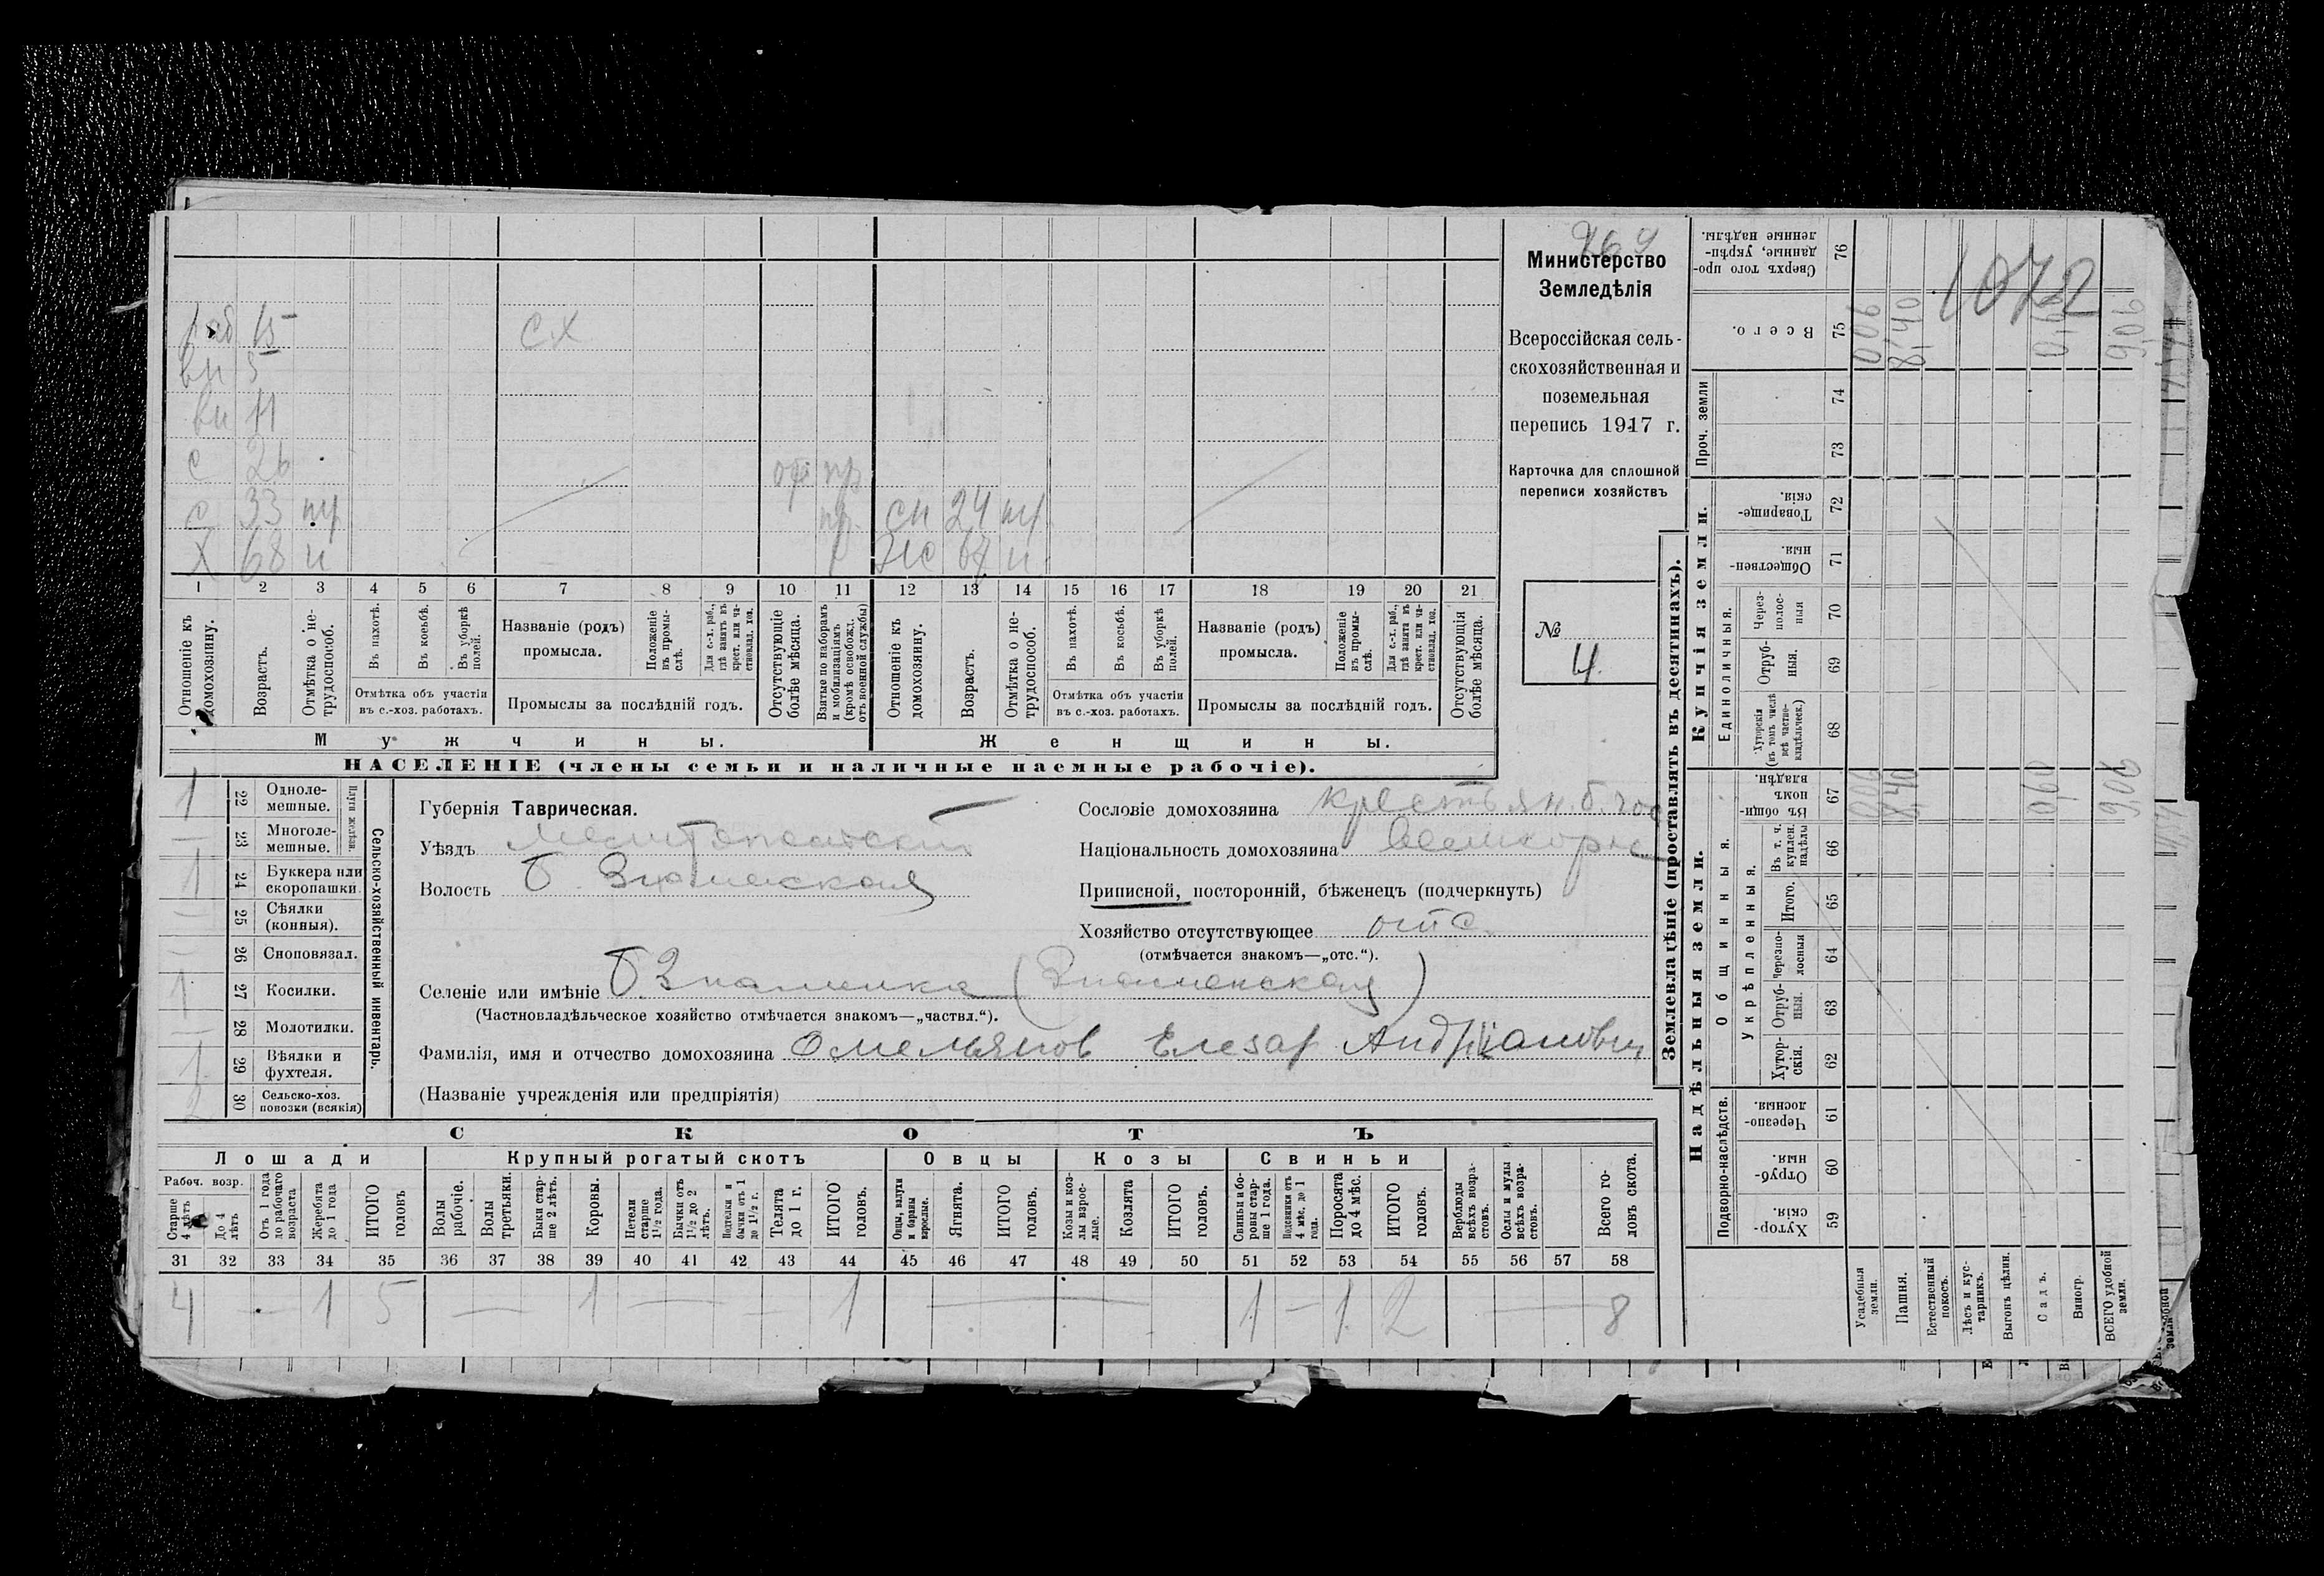 раб 15 СХ
вн 5
вн 11
с 26 пр
с 33 пр сн 24
Х 68 н 67 н
1 2 3 4 5 6 7 8 9 10 11 12 13 14 15 16 17 18 19 20 21
Отношеніе къ домохозяину.
Возрастъ.
Отмѣтка о нетрудоспособ.
Въ пахотѣ.
Въ косьбѣ.
Въ уборкѣ полей.
Отмѣтка объ участіи
въ с.-хоз. работахъ.
Названіе (родъ)
промысла.
Положеніе въ промыслѣ.
Для с.-х. раб., гдѣ занятъ въ крест. или частновлад. хоз.
Промыслы за послѣдній годъ.
Отсутствующіе болѣе мѣсяца.
Взятые по наборамъ и мобилизаціямъ (кромѣ освобожд. отъ военной службы)
Отношеніе къ домохозяину.
Возрастъ.
Отмѣтка о нетрудоспособ.
Въ пахотѣ.
Въ косьбѣ.
Въ уборкѣ полей.
Отмѣтка объ участіи
въ с.-хоз. работахъ.
Названіе (родъ)
промысла.
Положеніе въ промыслѣ.
Для с.-х. раб., гдѣ занята въ крест. или частновлад. хоз.
Промыслы за послѣдній годъ.
Отсутствующія болѣе мѣсяца.
Мужчины. Женщины.
НАСЕЛЕНІЕ (члены семьи и наличные наемные рабочіе).
269
Министерство
Земледѣлія
Всероссійская сель-
скохозяйственная и
поземельная
перепись 1917 г.
Карточка для сплошной
переписи хозяйствъ
№
4.
Сельско-хозяйственный инвентарь.
Плуги желѣзн.
1 22 Одноле-
мешные.
— 23 Многоле-
мешные.
1 24 Буккера или
скоропашки.
— 25 Сѣялки
(конныя).
— 26 Сноповязал.
1 27 Косилки.
— 28 Молотилки.
1 29 Вѣялки и
фухтеля.
2 30 Сельско-хоз.
повозки (всякія)
Губернія Таврическая.
Уѣздъ Мелитопольский
Волость Б. Знаменская
Сословіе домохозяина крестьян. б. гос
Національность домохозяина Великорус
Приписной, посторонній, бѣженецъ (подчеркнуть)
Хозяйство отсутствующее отс.
(отмѣчается знакомъ—„отс.“).
Селеніе или имѣніе Б Знаменка (Знаменская)
(Частновладѣльческое хозяйство отмѣчается знакомъ—„частвл.“).
Фамилія, имя и отчество домохозяина Омельянов Елезар Андріянович
(Названіе учрежденія или предпріятія)
СКОТЪ
Лошади Крупный рогатый скотъ Овцы Козы Свиньи
Рабоч. возр.
Старше 4 лѣтъ
До 4 лѣтъ
Отъ 1 года до рабочаго возраста
Жеребята до 1 года
ИТОГО головъ
Волы рабочіе.
Волы третьяки.
Быки старше 2 лѣтъ.
Коровы.
Нетели старше 1½ года.
Бычки отъ 1½ до 2 лѣтъ.
Подтелки и бычки отъ 1 до 1½ г.
Телята до 1 г.
ИТОГО головъ.
Овцы, валухи и бараны взрослые.
Ягнята.
ИТОГО головъ.
Козы и козлы взрослые.
Козлята
ИТОГО головъ.
Свиньи и боровы старше 1 года.
Подсвинки отъ 4 мѣс. до 1 года.
Поросята до 4 мѣс.
ИТОГО головъ.
Верблюды всѣхъ возрастовъ.
Ослы и мулы всѣхъ возрастовъ.
Всего головъ скота.
31 32 33 34 35 36 37 38 39 40 41 42 43 44 45 46 47 48 49 50 51 52 53 54 55 56 57 58
4 — 1 5 — 1 — — 1 — 1 — 1 2 — 8
Землевладѣніе (проставлять въ десятинахъ).
Надѣльныя земли. Купчія земли. Проч. земли
Подворно-наслѣдств. Общинныя. Единоличныя.
Укрѣпленныя.
Хуторскія. 59
Отрубныя. 60
Черезполосныя. 61
Хуторскія. 62
Отрубныя. 63
Черезполосныя 64
Итого. 65
Въ т. ч. куплен. надѣлы 66
Въ общинномъ владѣн. 67
Хуторскія (въ томъ числѣ всѣ частновладѣльческ.) 68
Отрубныя. 69
Черезполосныя 70
Общественныя. 71
Товарищескія. 72
73
74
Всего. 75
Сверхъ того проданные, укрѣпленные надѣлы. 76
1072
Усадебныя земли. 0,06 0,06
Пашня. 8,40 8,40
Естественный покосъ.
Лѣсъ и кустарникъ.
Выгонъ цѣлин.
Садъ. 0,60 0,60
Виногр.
ВСЕГО удобной земли. 9,06 9,06